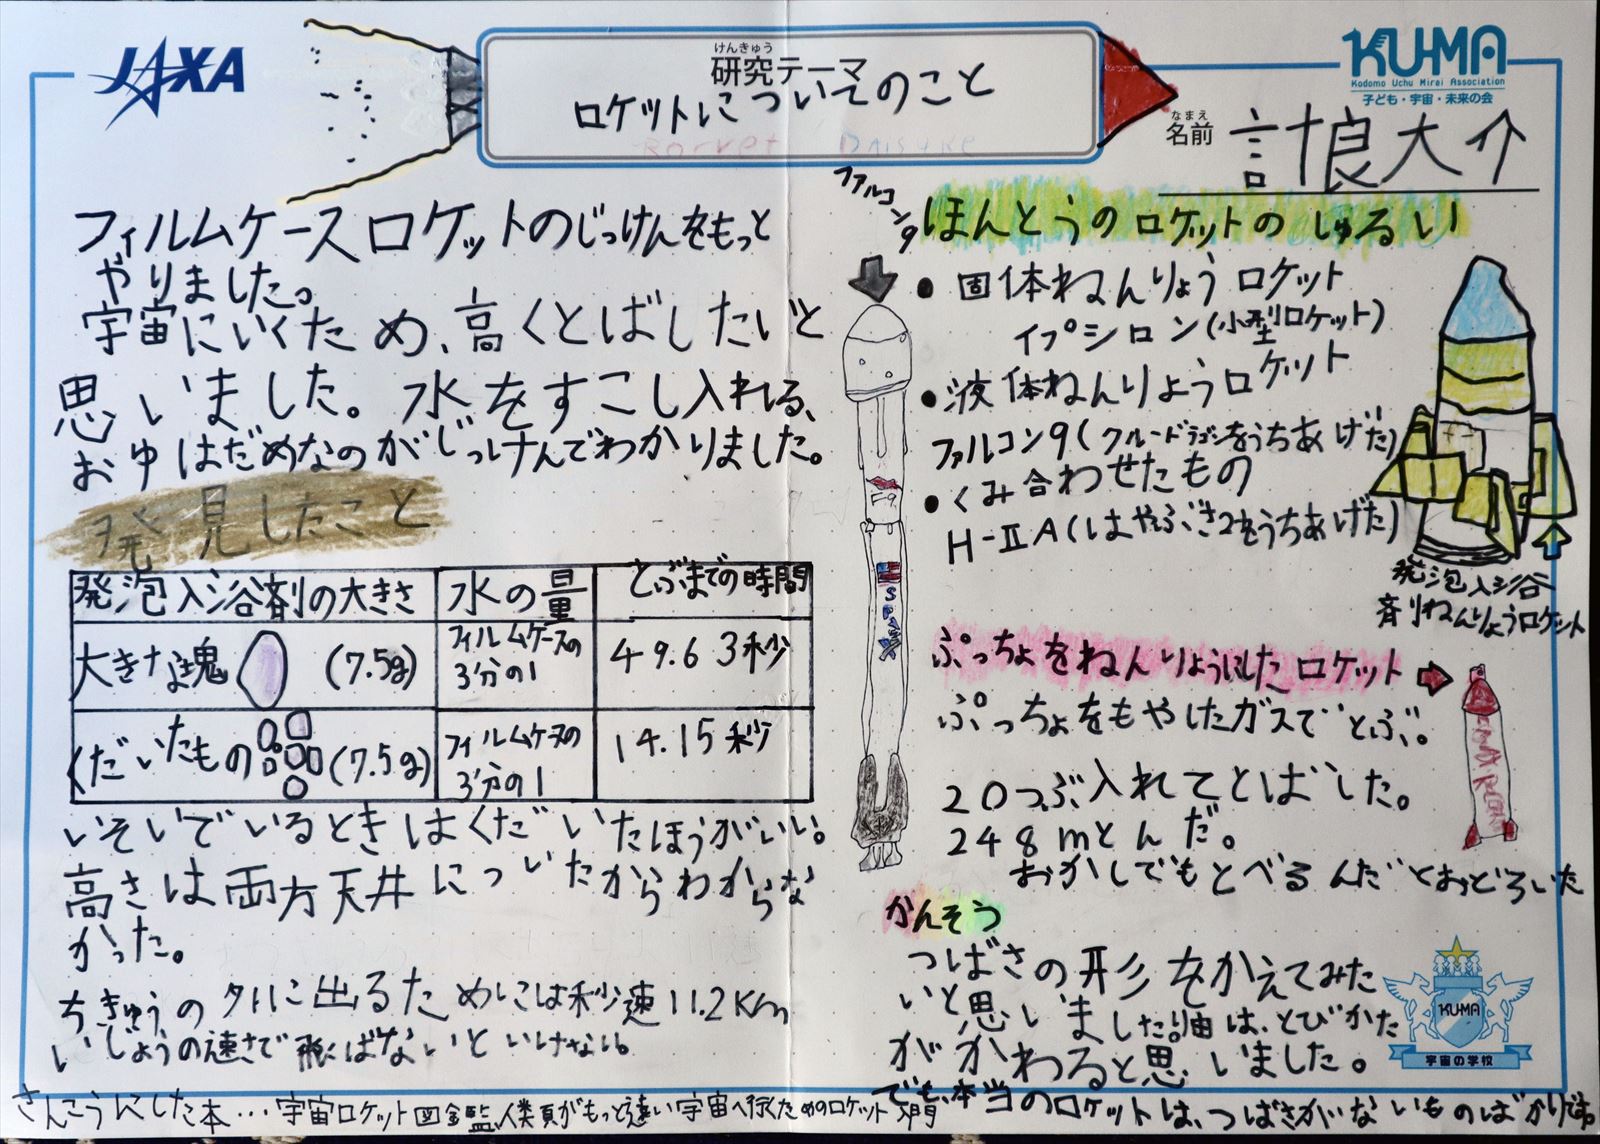 JAXA
けんきゅう
研究テーマ
ロケットについてのこと
KUMA
Kodomo Uchu Mirai Association
子ども・宇宙・未来の会
なまえ
名前
大介
フィルムケースロケットのじっけんをもっと
やりました。
宇宙にいくため、高くとばしたいと
思いました。水をすこし入れる、
おゆはだめなのがじっけんでわかりました。
発見したこと
発泡入浴剤の大きさ 水の量 とぶまでの時間
大きな塊 (7.5g) フィルムケースの3分の1 49.63秒
くだいたもの (7.5g) フィルムケースの3分の1 14.15秒
いそいでいるときはくだいたほうがいい。
高さは両方天井についたからわからな
かった。
ちきゅうの外に出るためには秒速11.2Km
いじょうの速さで飛ばないといけない。
ファルコン9
F-9
SPACEX
ほんとうのロケットのしゅるい
● 固体ねんりょうロケット
イプシロン(小型ロケット)
● 液体ねんりょうロケット
ファルコン9(クルードラゴンをうちあげた)
● くみ合わせたもの
H-ⅡA(はやぶさ2をうちあげた)
発泡入浴
剤ねんりょうロケット
ぷっちょをねんりょうにしたロケット
ぷっちょをもやしたガスでとぶ。
20つぶ入れてとばした。
248mとんだ。
おかしでもとべるんだとおどろいた
かんそう
つばさの形をかえてみた
いと思いました。理由は、とびかた
がかわると思いました。
でも、本当のロケットは、つばさがないものばかりです。
KUMA
宇宙の学校
さんこうにした本…宇宙ロケット図鑑、人類がもっと遠い宇宙へ行くためのロケット入門